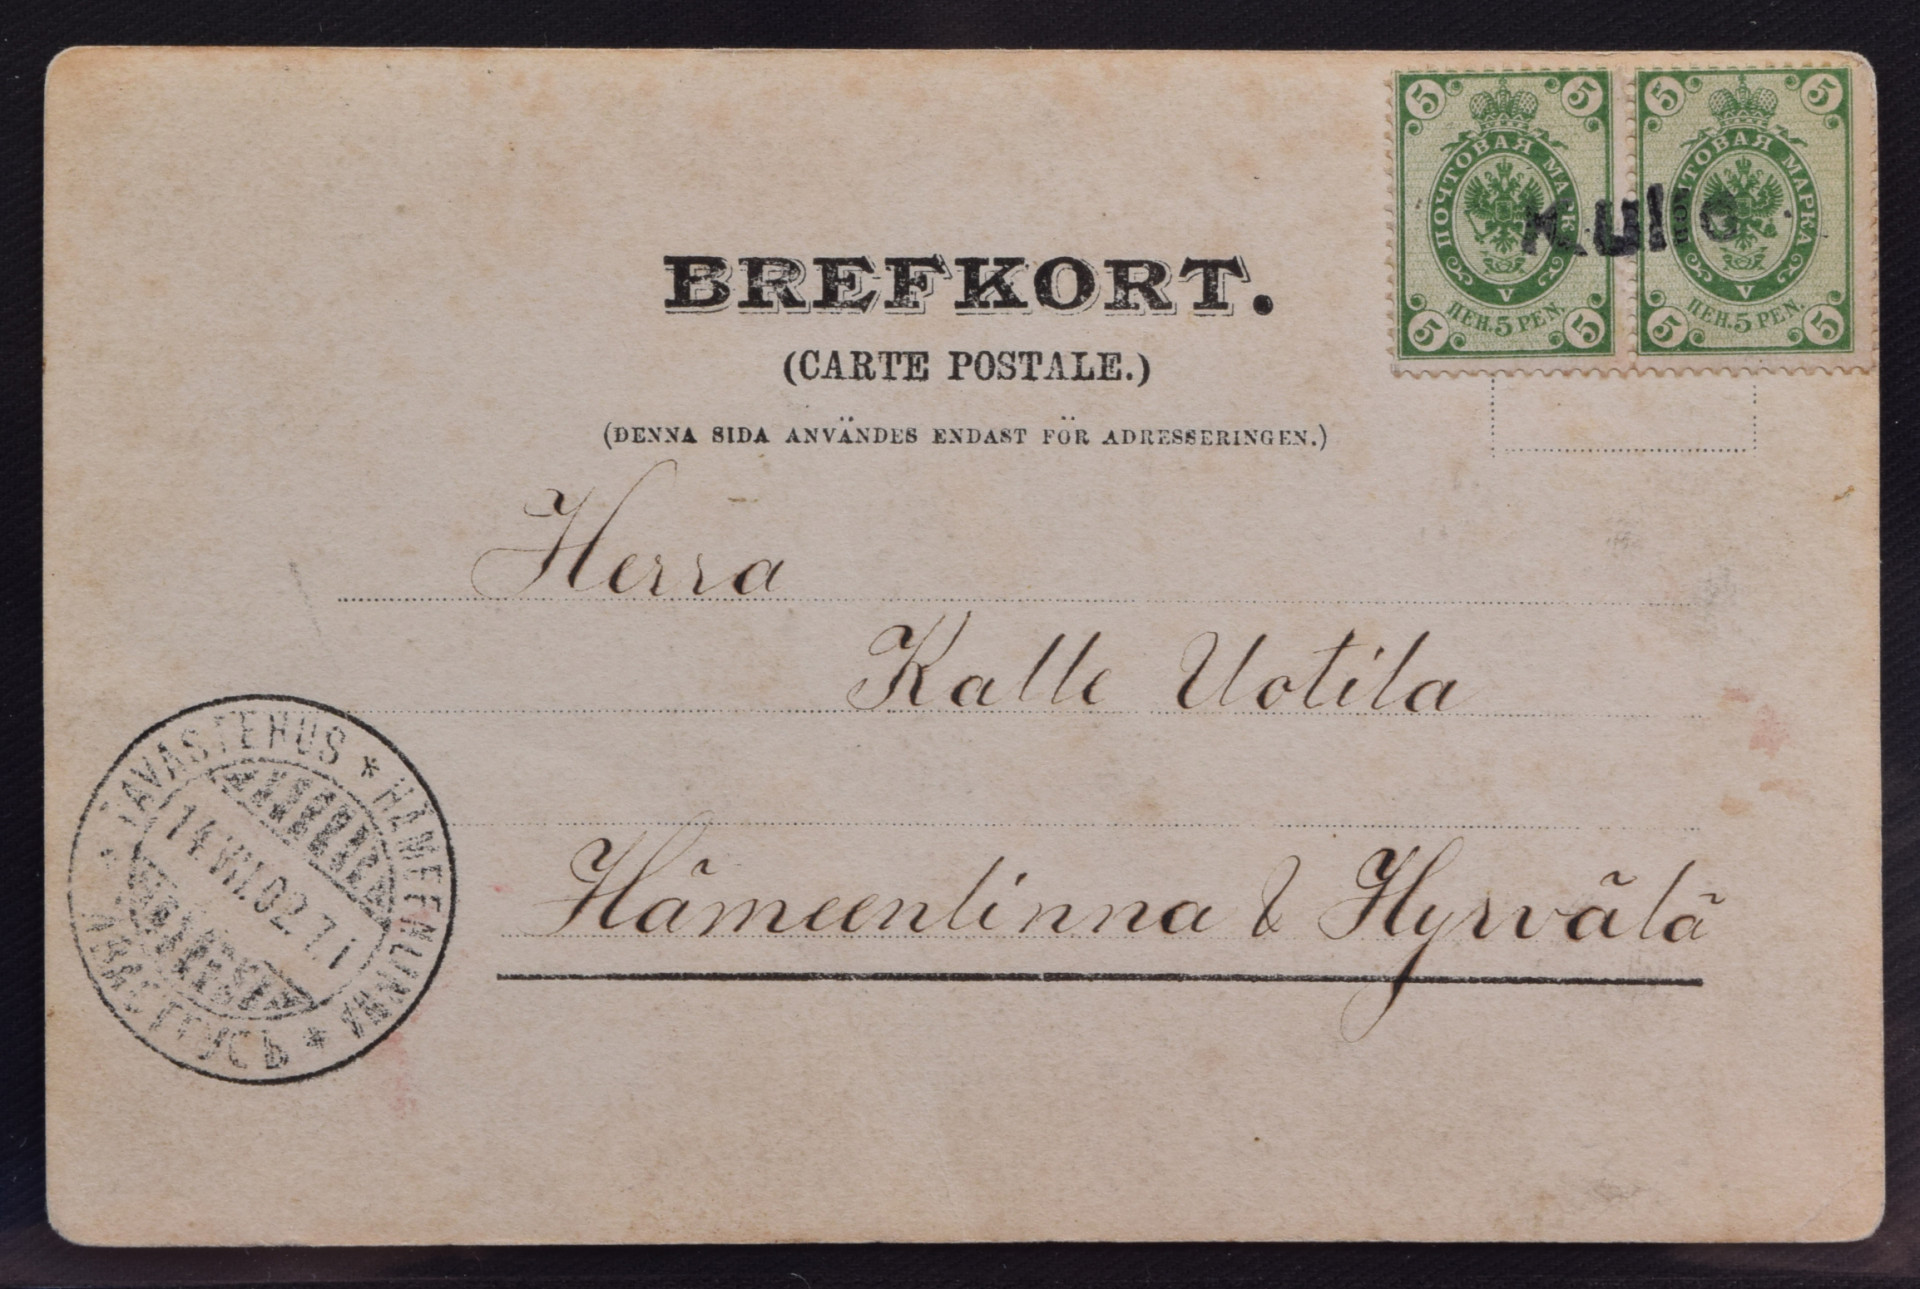 5 5
ПОЧТОВАЯ МАРК
V
ПЕН. 5 PEN.
5 5
5 5
ЧТОВАЯ МАРКА
V
ПЕН. 5 PEN.
5 5
Kullo
BREFKORT.
(CARTE POSTALE.)
(DENNA SIDA ANVÄNDES ENDAST FÖR ADRESSERINGEN.)
Herra
Kalle Uotila
Hämeenlinna & Hyrvälä
TAVASTEHUS * HÄMEENLINNA * ТАВАСТГУСЪ *
14.VII.02.7 i